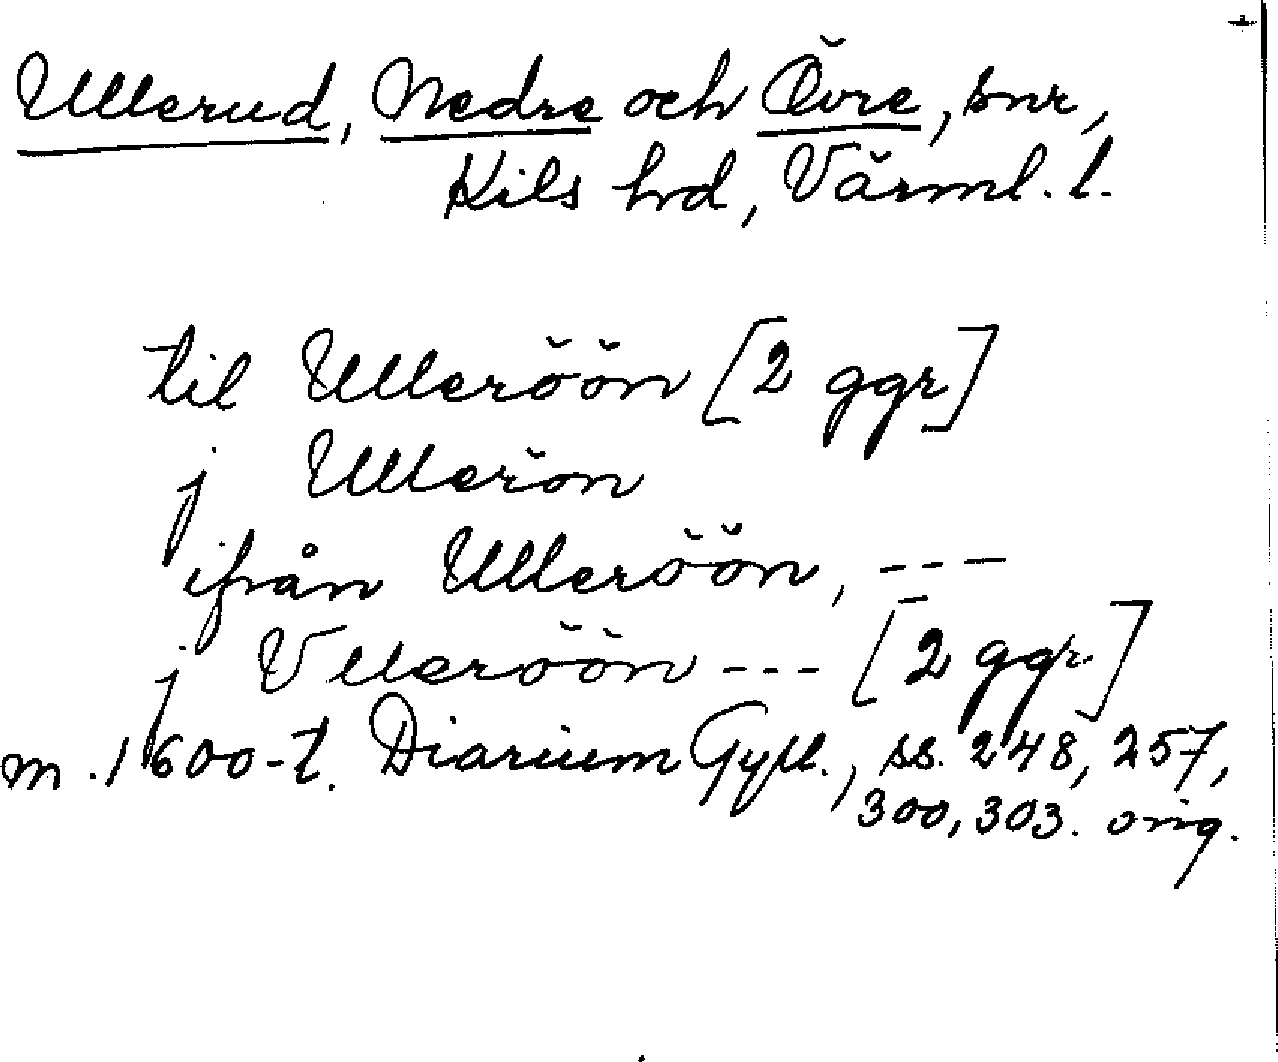 Ullerud, Nedre och Övre, snr,
Kils hd, Värml. l.
til Ulleröön [2 ggr]
j Ullerön
ifrån Ulleröön, ---
j Vlleröön --- [2 ggr]
m. 1600-t. Diarium Gyll., ss. 248, 257,
300, 303. orig.